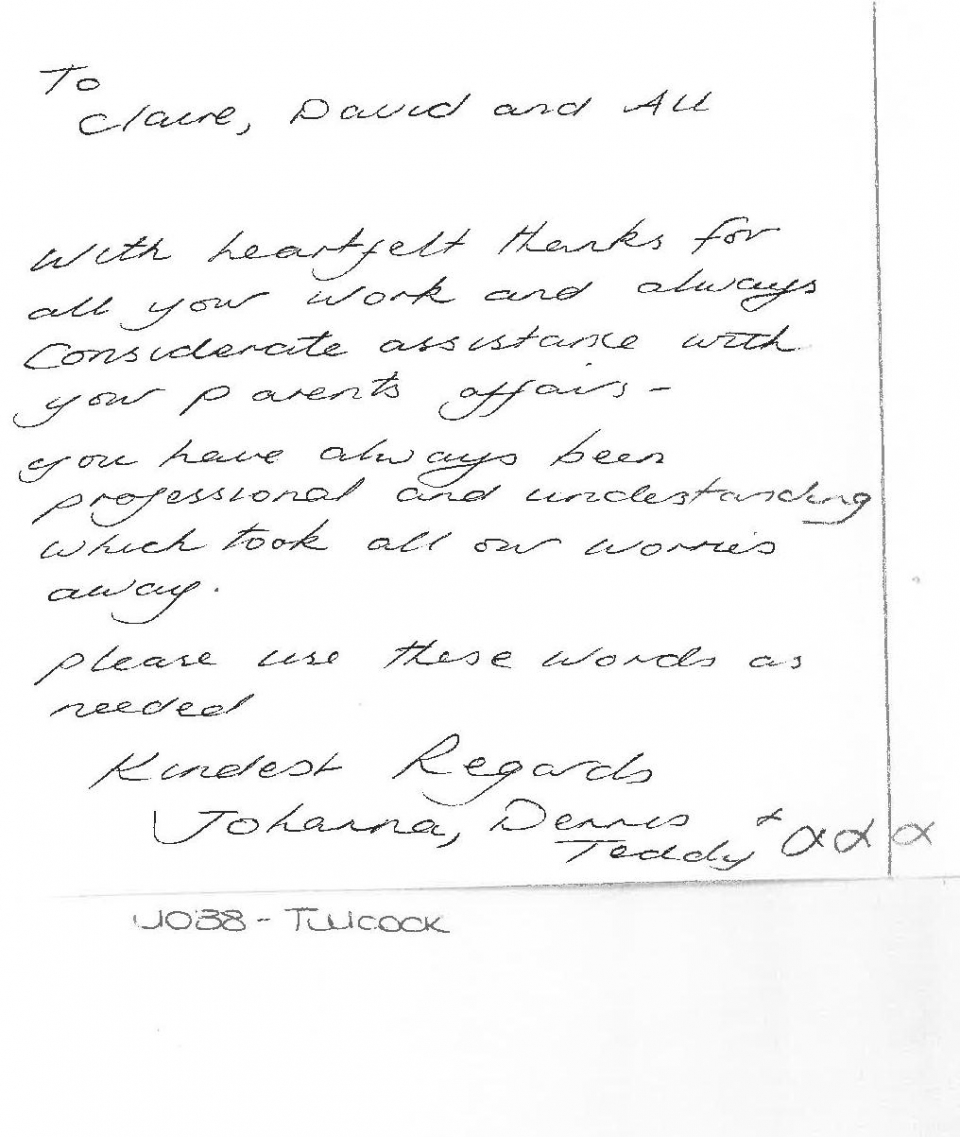 To
Claire, David and All
With heartfelt thanks for
all your work and always
Considerate assistance with
your parents affairs -
you have always been
professional and understanding
which took all our worries
away.
please use these words as
needed
Kindest Regards
Johanna, Dennis +
Teddy xxx